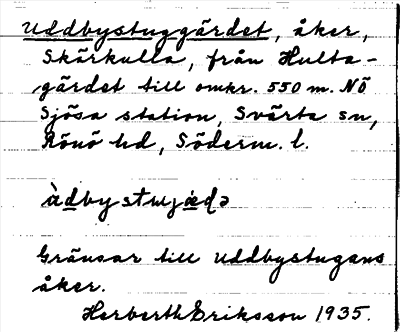 Uddbystuggärdet, åker,
Skärkulla, från Hulta-
gärdet till omkr. 550 m. NÖ
Sjösa station, Svärta sn,
Rönö hd, Söderm. l.
Gränsar till Uddbystugans
åker.
Herberth Eriksson 1935.